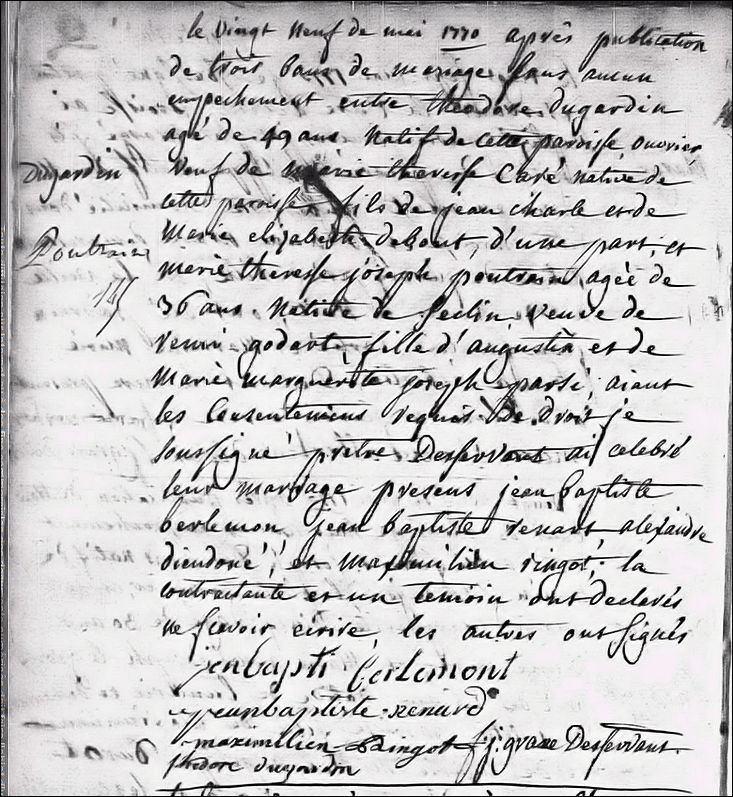 le vingt neuf de mei 1770 après publication
de trois bans de mariage sans aucun
empechement entre theodore dugardin
agé de 49 ans natif de cette paroisse, ouvrier,
Dugardin
veuf de marie theresse Caré native de
cette paroisse, fils de jean charle et de
Marie elizabeth debout, d'une part, et
Poutrain
marie theresse joseph poutrain agée de
36 ans native de Seclin, veuve de
henri godart, fille d'augustin et de
Marie marguerite joseph parsi, aiant
les Consentemens requis de droit, je
soussigné prètre Desservant ai celebré
leur mariage presens jean baptiste
berlemon, jean baptiste renart, alexandre
diendoné, et maximilien ringot; la
contractante et un temoin ont declarés
ne scavoir écrire, les autres ont signés
jenbapti berlemont
jeanbaptiste renard
maximilien Ringot Desservant
dugardin